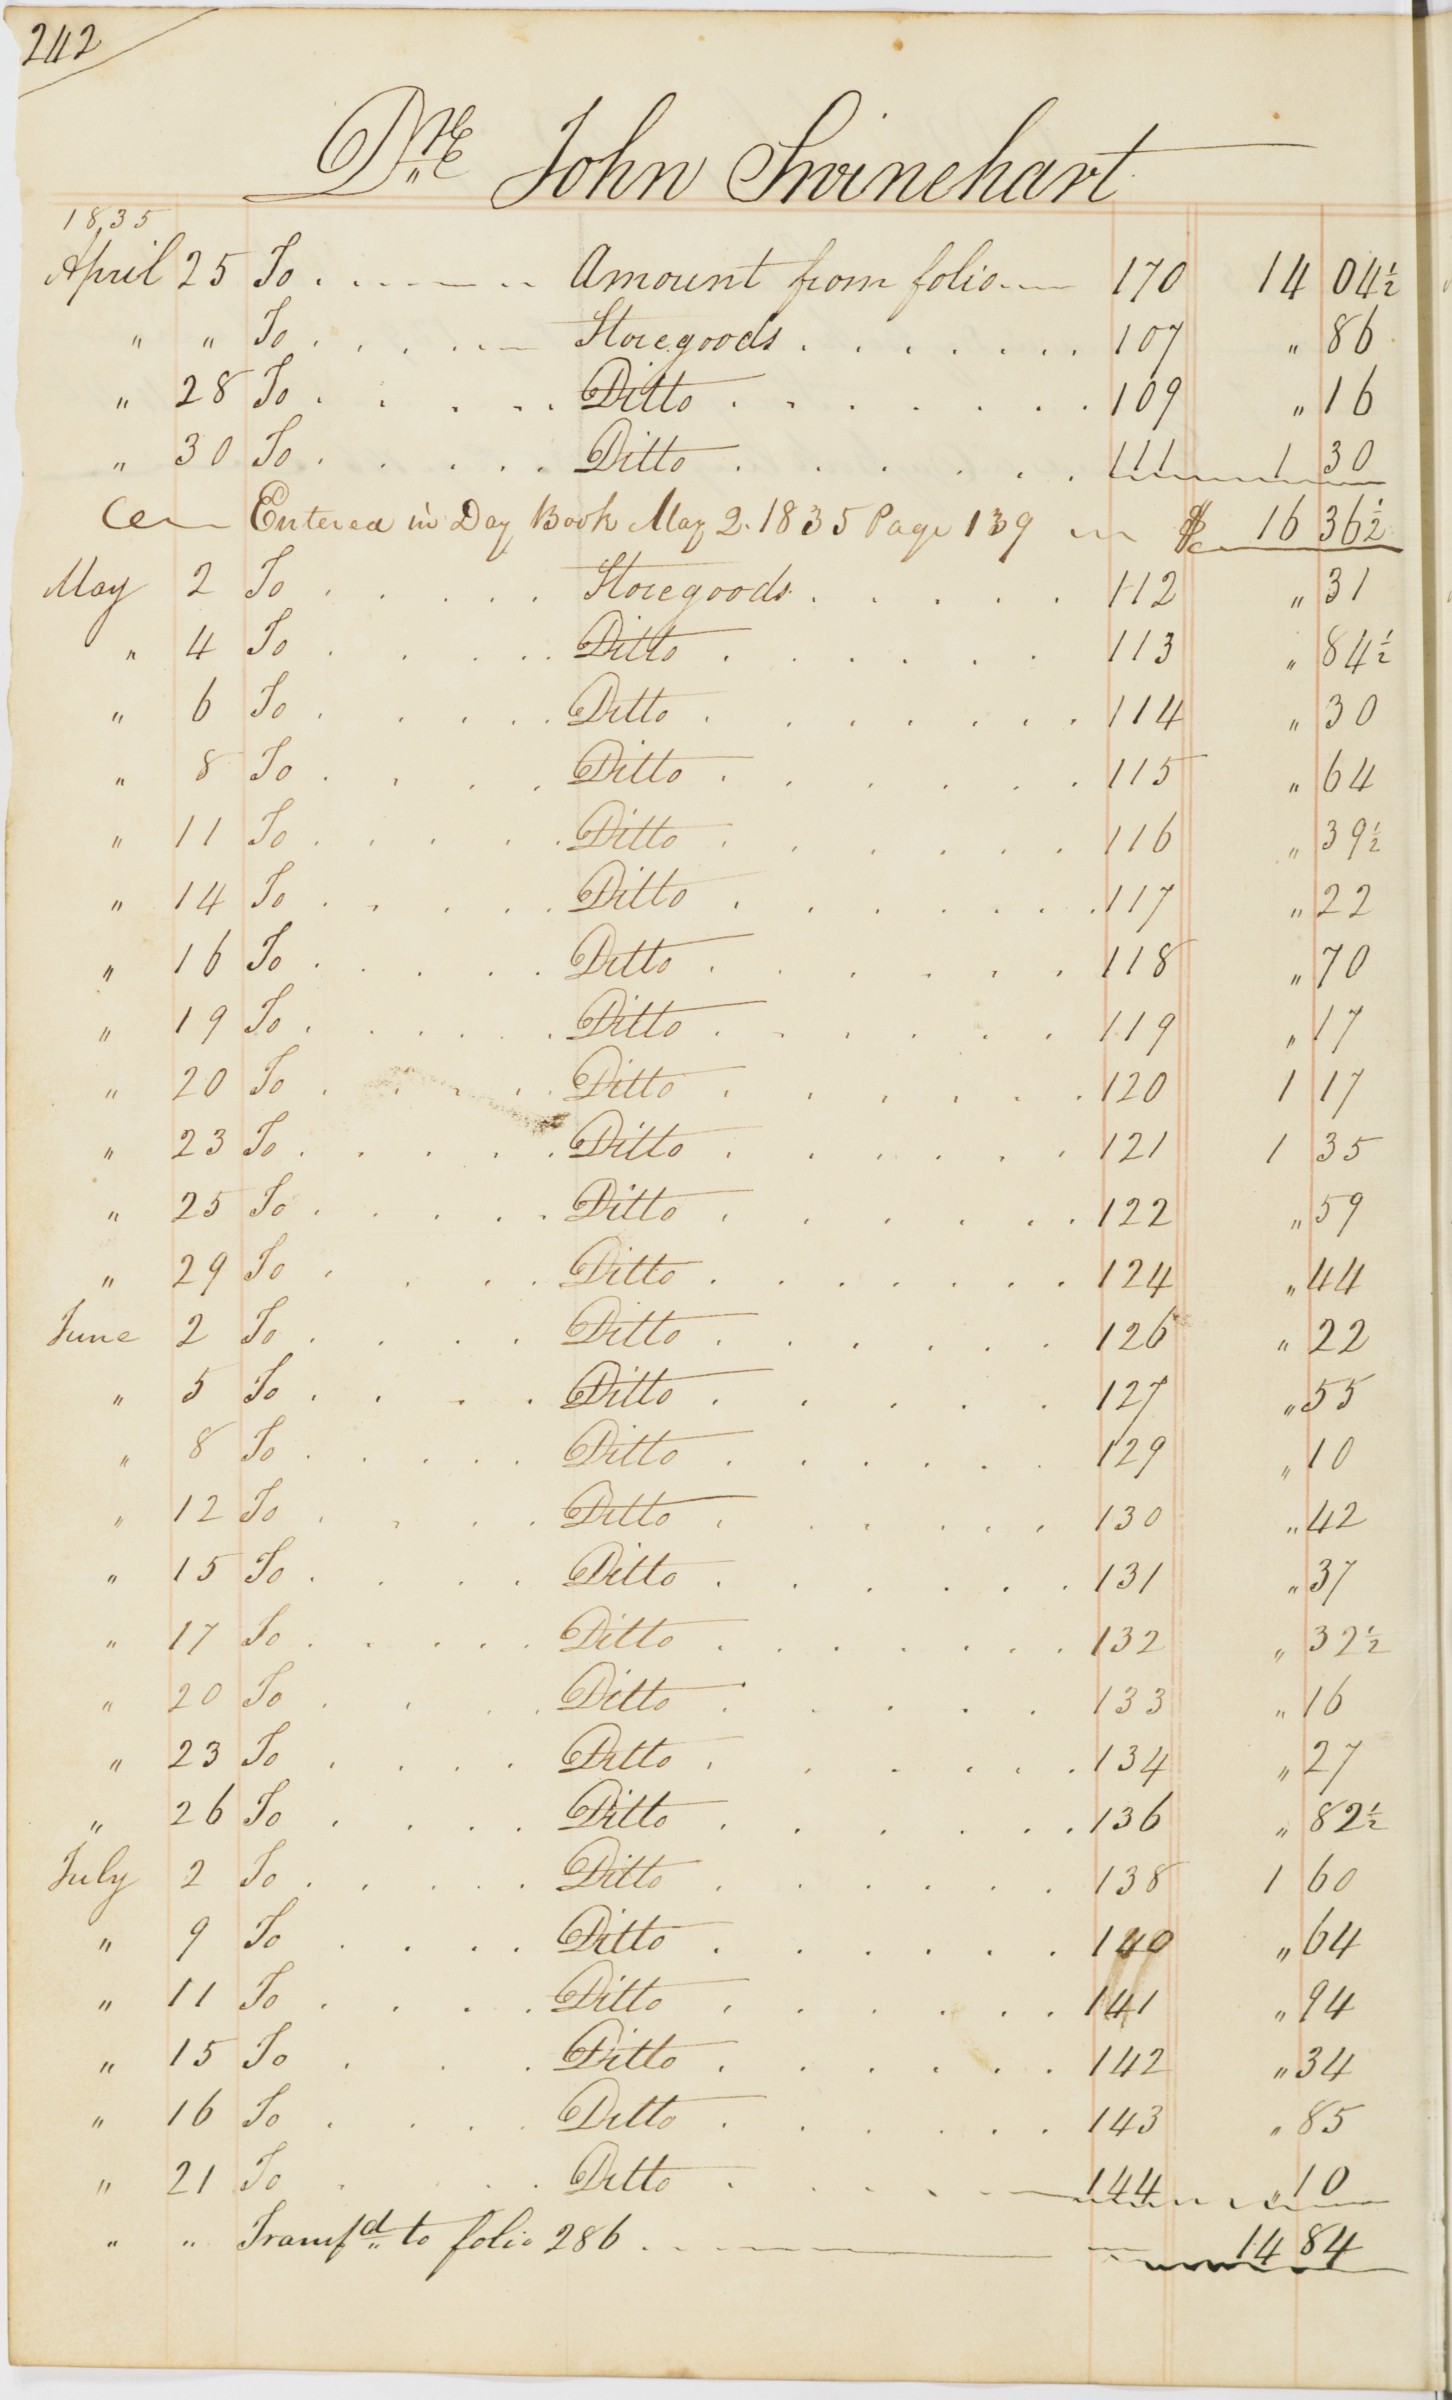 242
Dr. John Swinehart
1835
April 25 To . . . . . Amount from folio 170 14 04½
" " To . . . . . Storegoods . . . . . . . 107 " 86
" 28 To . . . . . Ditto . . . . . . . 109 " 16
" 30 To . . . . . Ditto . . . . . . . 111 1 30
Entered in Day Book May 2. 1835 Page 139 $ 16 36½
May 2 To . . . . . Storegoods . . . . . 112 " 31
" 4 To . . . . . Ditto . . . . . . 113 " 84½
" 6 To . . . . . Ditto . . . . . . . 114 " 30
" 8 To . . . . . Ditto . . . . . . . 115 " 64
" 11 To . . . . . Ditto . . . . . . 116 " 39½
" 14 To . . . . . Ditto . . . . . . . 117 " 22
" 16 To . . . . . Ditto . . . . . . . 118 " 70
" 19 To . . . . . Ditto . . . . . . . 119 " 17
" 20 To . . . . . Ditto . . . . . . . 120 1 17
" 23 To . . . . . Ditto . . . . . . . 121 1 35
" 25 To . . . . . Ditto . . . . . . . 122 " 59
" 29 To . . . . Ditto . . . . . . . 124 " 44
June 2 To . . . . Ditto . . . . . . 126 " 22
" 5 To . . . . Ditto . . . . . . 127 " 55
" 8 To . . . . . Ditto . . . . . . 129 " 10
" 12 To . . . . Ditto . . . . . . 130 " 42
" 15 To . . . . Ditto . . . . . . 131 " 37
" 17 To . . . . . Ditto . . . . . . . 132 " 32½
" 20 To . . . . Ditto . . . . . 133 " 16
" 23 To . . . . Ditto . . . . . . 134 " 27
" 26 To . . . . Ditto . . . . . . . 136 " 82½
July 2 To . . . . . Ditto . . . . . . 138 1 60
" 9 To . . . . Ditto . . . . . . 140 " 64
" 11 To . . . . Ditto . . . . . . 141 " 94
" 15 To . . . Ditto . . . . . . 142 " 34
" 16 To . . . . Ditto . . . . . . 143 " 85
" 21 To . . . Ditto . . . . . 144 " 10
" " Transfd to folio 286 . . . 14 84